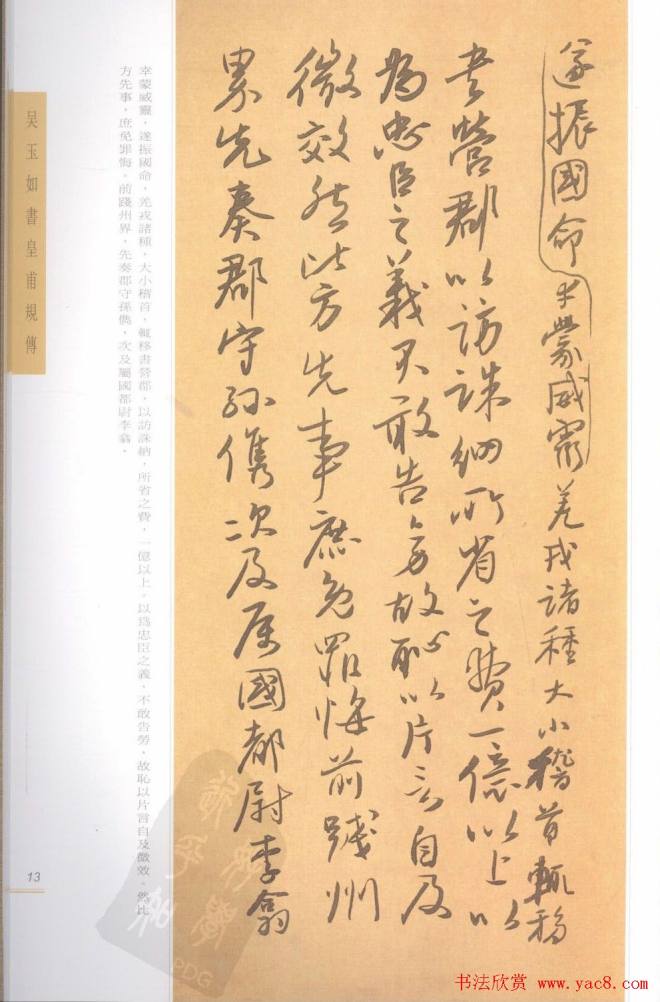 遂振國命幸蒙威靈羌戎諸種大小稽首輒移
書營郡以訪誅納所省之費一億以上以
為忠臣之義不敢告勞故恥以片言自及
微效然比方先事庶免罪悔前踐州
界先奏郡守孫儁次及属國都尉李翕
幸蒙威靈，遂振國命，羌戎諸種，大小稽首，輒移書營郡，以訪誅納，所省之費，一億以上。以爲忠臣之義，不敢告勞，故恥以片言自及微效。然比
方先事，庶免罪悔。前踐州界，先奏郡守孫儁，次及屬國都尉李翕，
吴玉如書皇甫規傳
13
书法欣赏 www.yac8.com